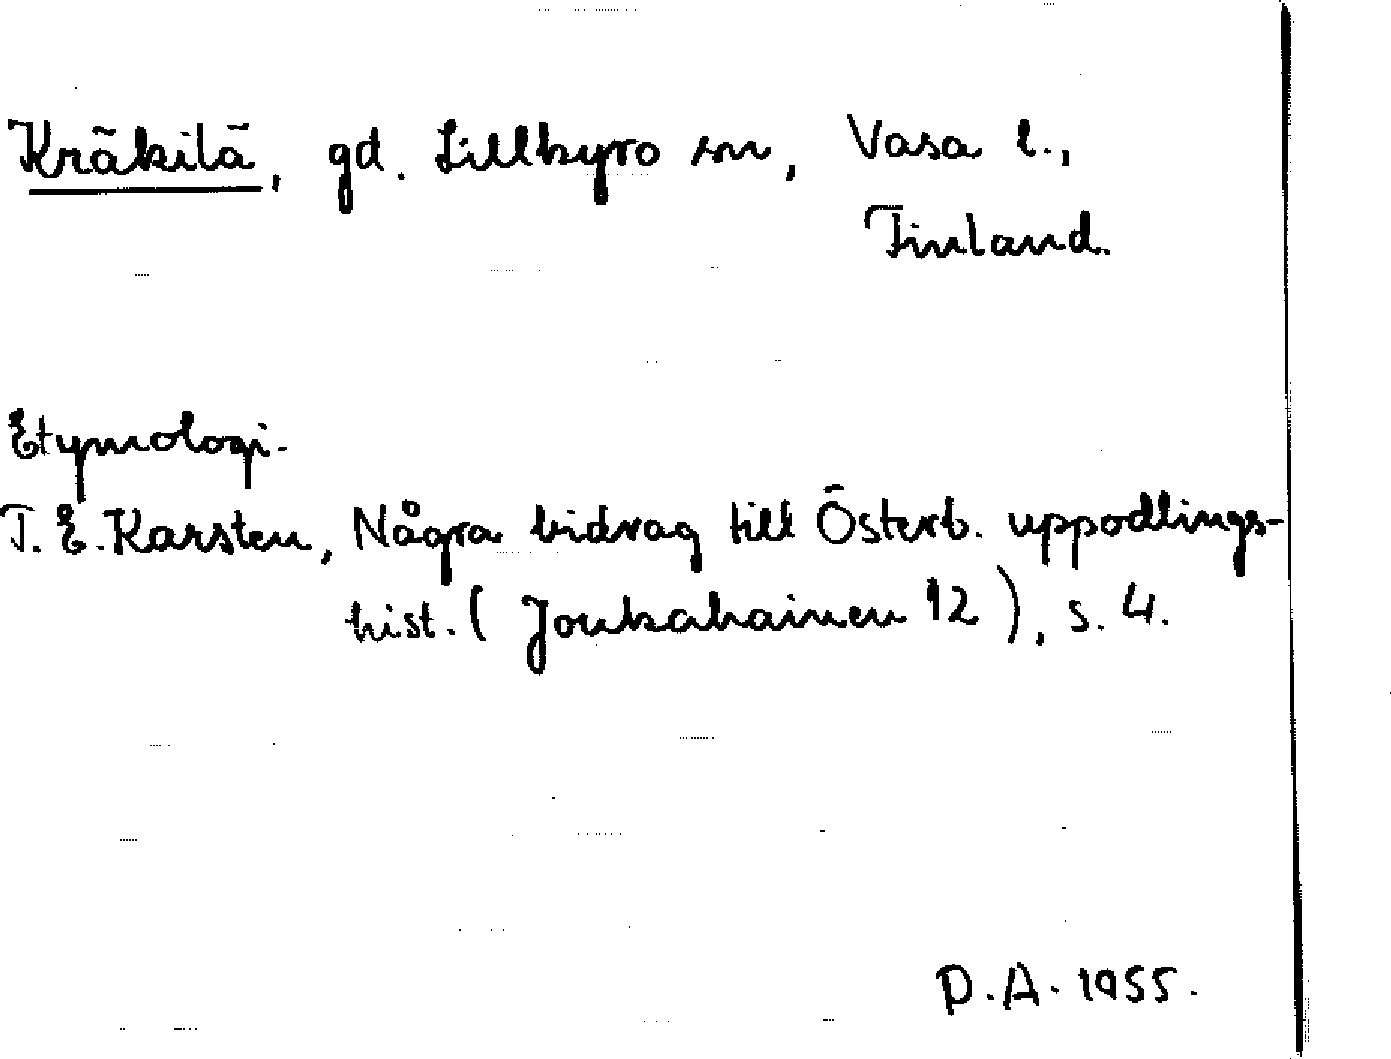 Kräkilä, gd. Lillkyro sn, Vasa l.,
Finland.
Etymologi.
T. E. Karsten, Några bidrag till Österb. uppodlings-
hist. (Joukahainen 12), s. 4.
D.A. 1955.